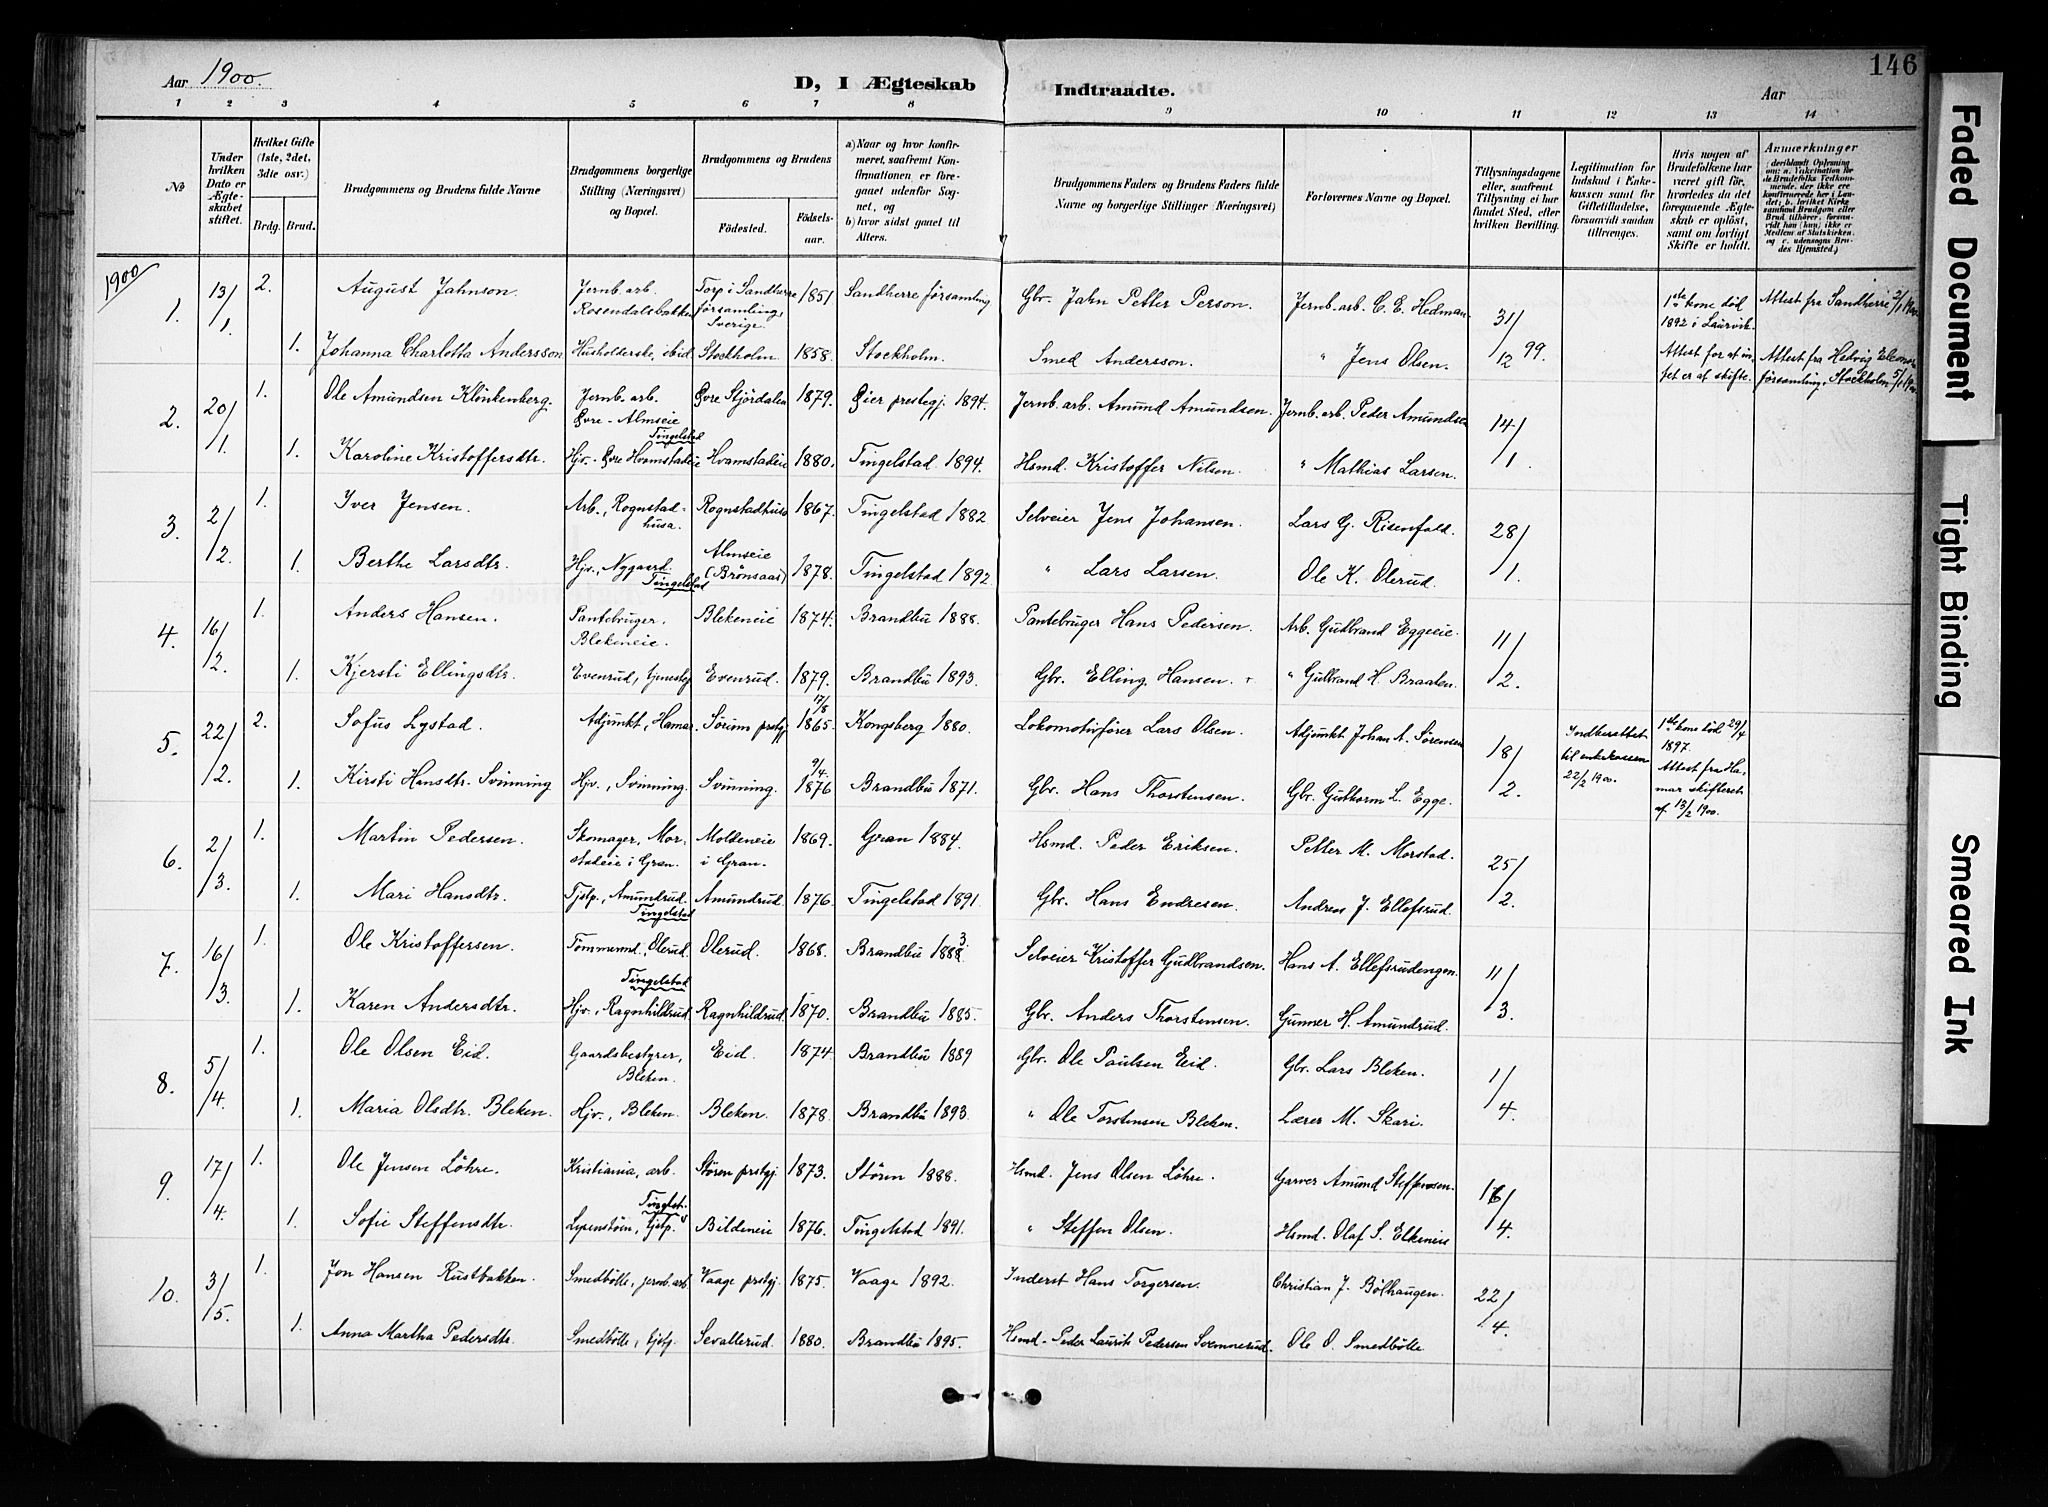 146
Aar 1900.
D, I Ægteskab Indtraadte.
Aar
1 2 3 4 5 6 7 8 9 10 11 12 13 14
№
Under hvilken Dato er Ægteskabet stiftet.
Hvilket Gifte (1ste, 2det, 3die osv.)
Brdg. Brud.
Brudgommens og Brudens fulde Navne
Brudgommens borgerlige Stilling (Næringsvei) og Bopæl.
Brudgommens og Brudens
Fødested.
Fødselsaar.
a) Naar og hvor konfirmeret, saafremt Konfirmationen er foregaaet udenfor Sognet, og
b) hvor sidst gaaet til Alters.
Brudgommens Faders og Brudens Faders fulde Navne og borgerlige Stillinger (Næringsvei)
Forlovernes Navne og Bopæl.
Tillysningsdagene eller, saafremt Tillysning ei har fundet Sted, efter hvilken Bevilling.
Legitimation for Indskud i Enkekassen samt for Giftetilladelse, forsaavidt saadan tiltrænges.
Hvis nogen af Brudefolkene har været gift før, hvorledes da det foregaaende Ægteskab er opløst, samt om lovligt Skifte er holdt.
Anmærkninger
1900
1. 13/1. 2. August Jahnson. Jernb. arb. Rosendalsbakken Torp i Sandherre församling, Sverige. 1851 Sandherre församling Gbr. Jahn Petter Person. Jernb. arb. C. E. Hedman 31/12 99. 1ste kone död 1892 i Laurvik. Attest fra Sandherre 2/1 1900
1. Johanna Charlotta Andersson Husholderske, ibid. Stockholm 1858. Stockholm. Smed Andersson. " Jens Olsen. Attest for at intet er at skifte. Attest fra Hedvig Eleonora församling, Stockholm 5/1 1900
2. 20/1. 1. Ole Amundsen Klinkenberg. Jernb. arb. Øvre-Almseie Øvre Stjördalen 1879. Øier prestegj. 1894. Jernb. arb. Amund Amundsen. Jernb. arb. Peder Amundsen 14/1
1. Karoline Kristoffersdtr. Hjv.- Øvre Hvamstadeie Tingelstad Hvamstadeie 1880. Tingelstad 1894. Hsmd. Kristoffer Nilsen. " Mathias Larsen.
3. 2/2. 1. Iver Jensen. Arb., Rognstadhusa. Rognstadhusa 1867. Tingelstad 1882 Selveier Jens Johansen. Lars G. Risenfald. 28/1.
1. Berthe Larsdtr. Hjv., Nygaard. Tingelstad Almseie (Brönsaas) 1878. Tingelstad 1892. " Lars Larsen. Ole K. Olerud.
4. 16/2. 1. Anders Hansen. Pantebruger. Blekeneie. Blekeneie 1874. Brandbu 1888. Pantebruger Hans Pedersen. Arb. Gudbrand Eggeeie. 11/2.
1. Kjersti Ellingsdtr. Evenrud, tjenestp Evenrud. 1879. Brandbu 1893. Gbr. Elling Hansen. " Gulbrand H. Braaten.
5. 22/2. 2. Sofus Lystad. Adjunkt, Hamar. Sørum prestgj 17/8 1865 Kongsberg 1880. Lokomotivfører Lars Olsen. Adjunkt Johan A. Sørensen 18/2. Indberettet til enkekassen 22/2 1900. 1ste kone död 29/4 1897. Attest fra Hamar skifteret af 13/2 1900.
1. Kirsti Hansdtr. Svinning Hjv., Svinning. Svinning. 9/4. 1876 Brandbu 1871. Gbr. Hans Thorstensen. Gbr. Guthorm L. Egge.
6. 2/3. 1. Martin Pedersen. Skomager, Morstadeie i Gran. Moldeneie i Gran. 1869. Gran 1884. Hsmd. Peder Eriksen. Petter M. Morstad. 25/2.
1. Mari Hansdtr. Tjstp., Amundrud. Tingelstad Amundrud. 1876. Tingelstad 1891. Gbr. Hans Endresen. Andreas J. Ellefsrud.
7. 16/3. 1. Ole Kristoffersen. Tömmermd, Olerud. Olerud. 1868. Brandbu 1883. Selveier Kristoffer Gudbrandsen. Hans A. Ellefsrudengen. 11/3.
1. Karen Andersdtr. Hjv., Ragnhildrud Tingelstad Ragnhildrud. 1870. Brandbu 1885. Gbr. Anders Thorstensen. Gunner H. Amundrud.
8. 5/4. 1. Ole Olsen Eid. Gaardsbestyrer, Bleken. Eid. 1874. Brandbu 1889 Gbr. Ole Paulsen Eid. Gbr. Lars Bleken. 1/4.
1. Maria Olsdtr. Bleken. Hjv., Bleken. Bleken. 1878. Brandbu 1893. " Ole Torstensen Bleken. Lærer M. Skari.
9. 17/4. 1. Ole Jensen Löhre. Kristiania, arb. Stören prstgj. 1873. Stören 1888. Hsmd. Jens Olsen Löhre. Garver Amund Steffensen. 16/4.
1. Sofie Steffensdtr. Lysenstöen, tjstp. Tingelst. Bildeneie 1876. Tingelstad 1891. " Steffen Olsen. Hsmd. Olaf S. Elkeneie
10. 3/5. 1. Jon Hansen Rustbakken. Smedbölle, jernb. arb. Vaage prstgj. 1875. Vaage 1892. Inderst Hans Torgersen. Christian J. Bölhaugen. 22/4.
1. Anna Martha Pedersdtr. Smedbölle, tjstp. Sevallerud. 1880. Brandbu 1895. Hsmd. Peder Laurits Pedersen Svennerud. Ole O. Smedbölle
Faded Document
Tight Binding
Smeared Ink